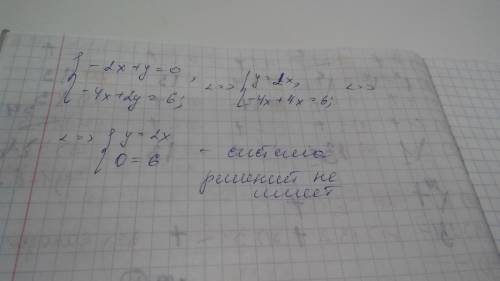 { -2x+y=0, <=> { y=2x, <=>
-4x+2y=6; -4x+4x=6;
<=> { y=2x
0=6 - система
решений не
имеет